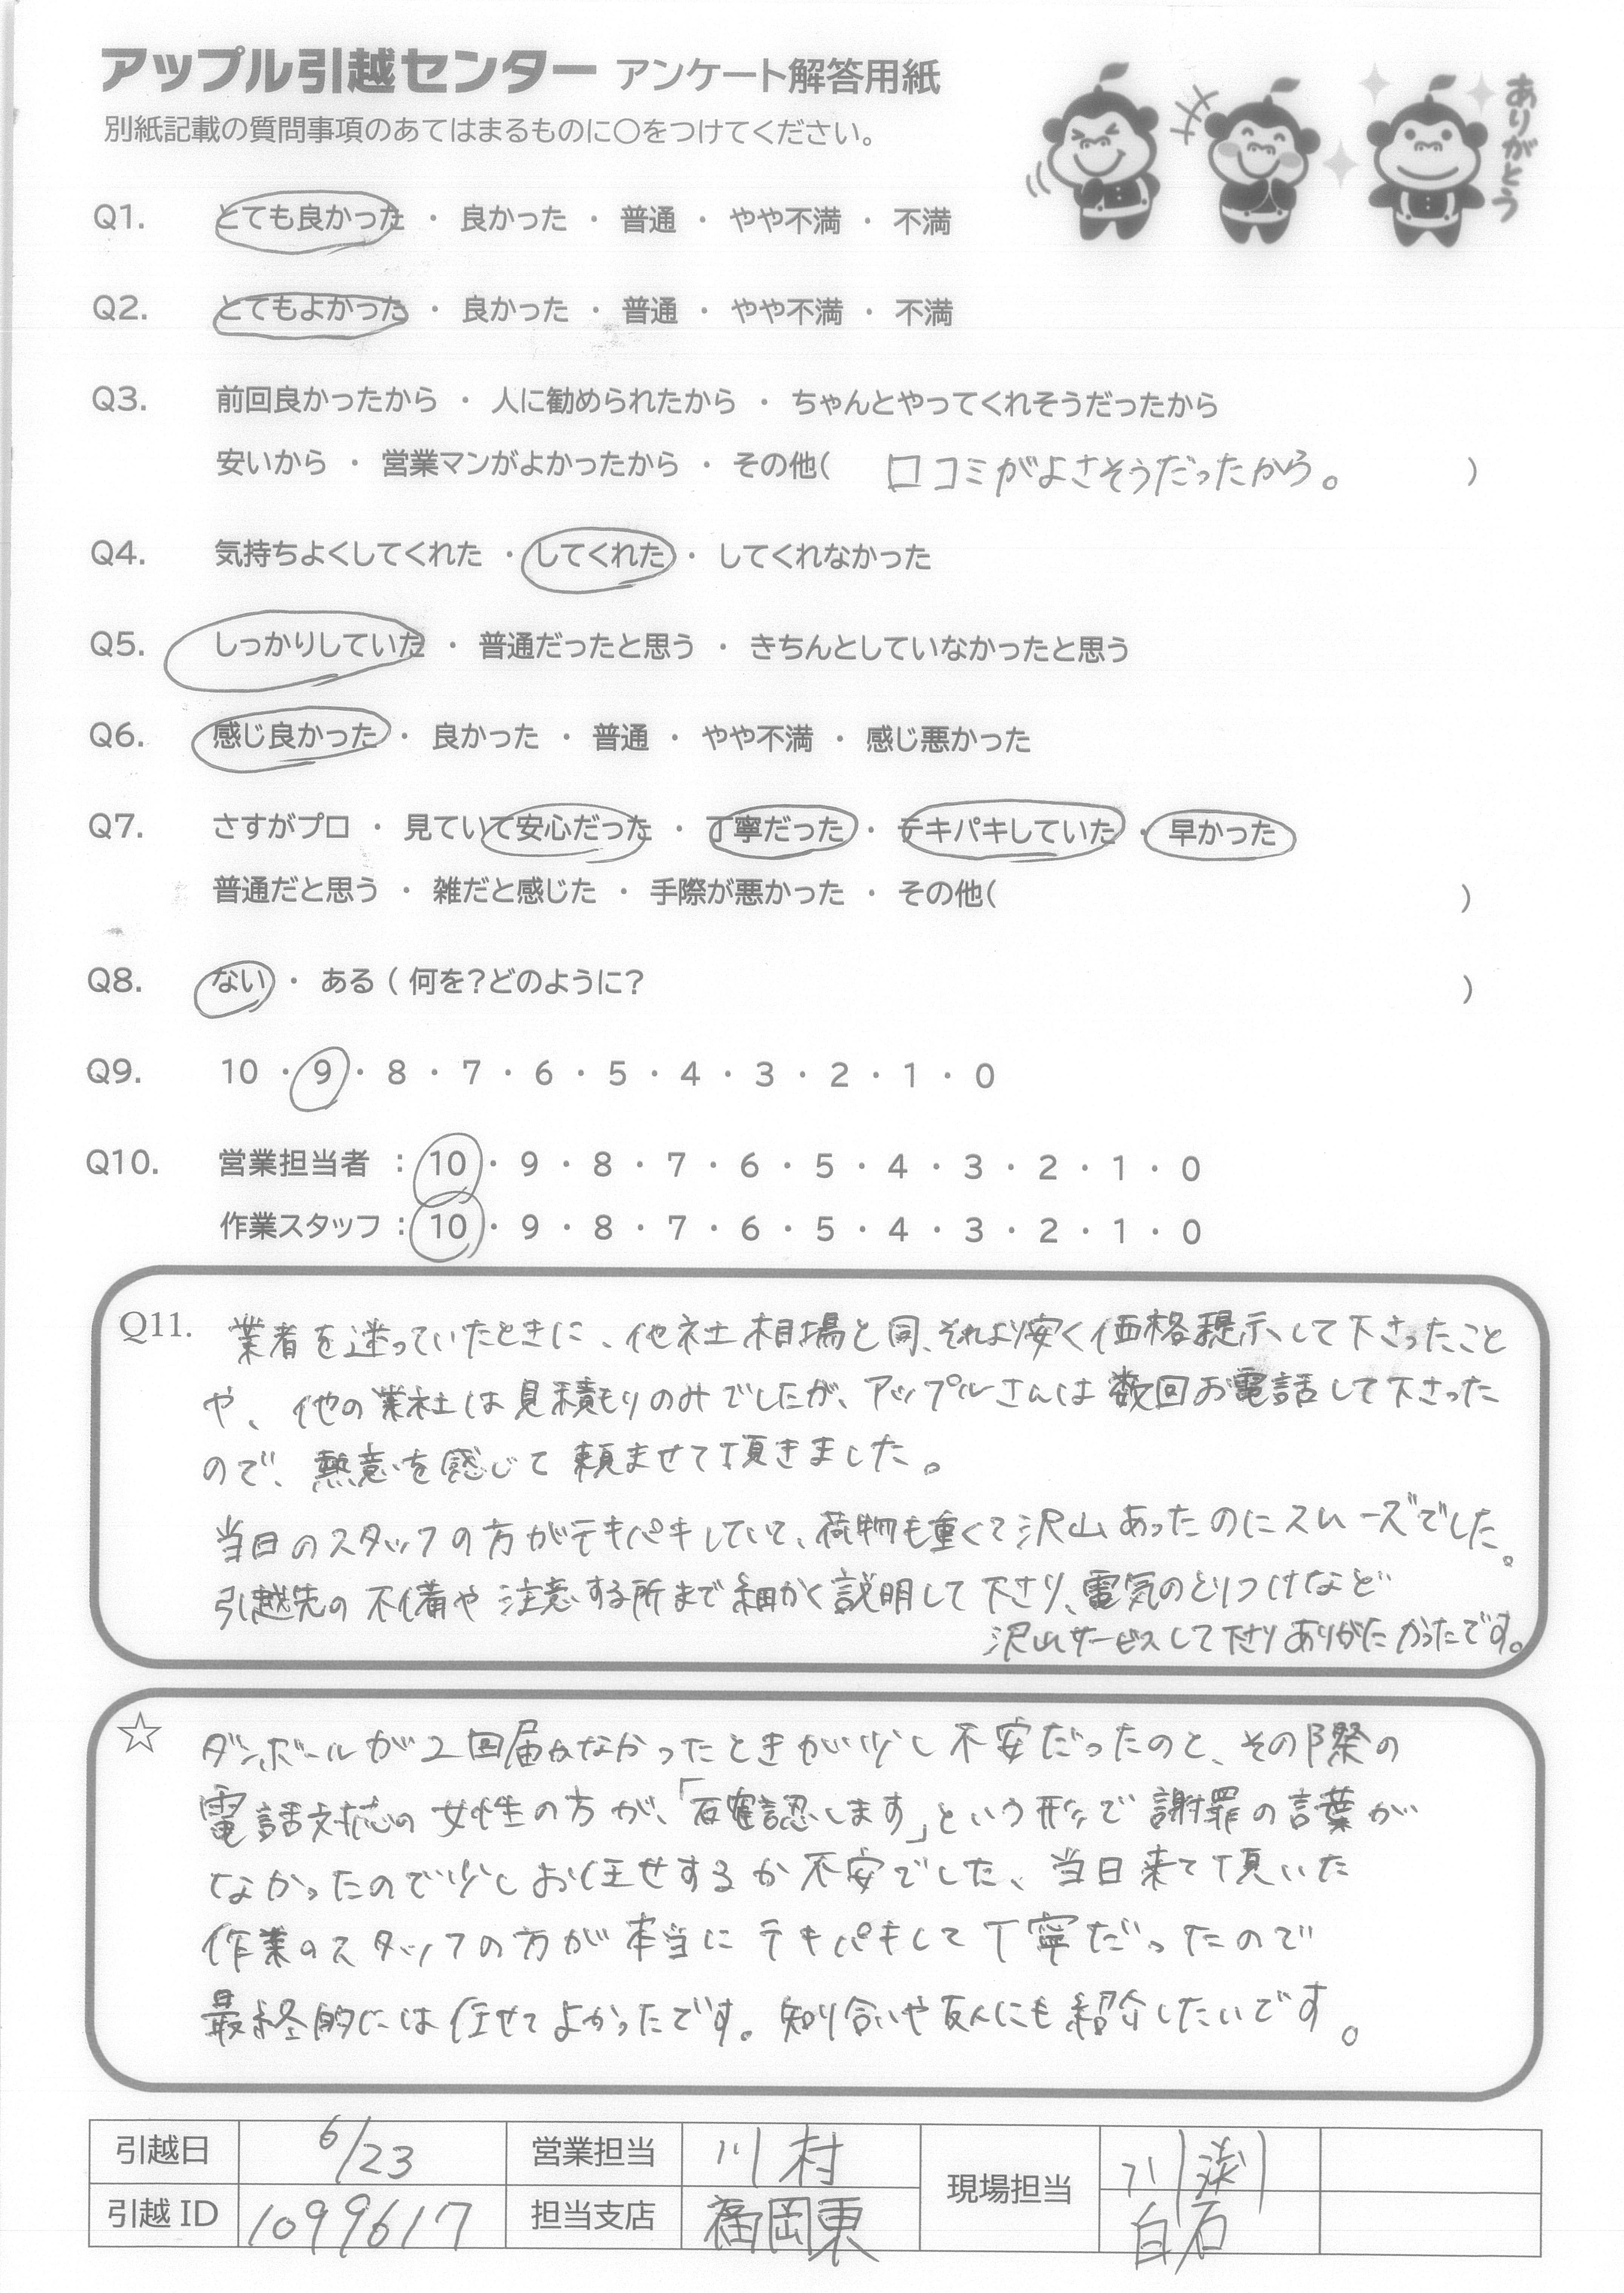 アップル引越センター アンケート解答用紙
ありがとう
別紙記載の質問事項のあてはまるものに〇をつけてください。
Q1. とても良かった ・ 良かった ・ 普通 ・ やや不満 ・ 不満
Q2. とてもよかった ・ 良かった ・ 普通 ・ やや不満 ・ 不満
Q3. 前回良かったから ・ 人に勧められたから ・ ちゃんとやってくれそうだったから
安いから ・ 営業マンがよかったから ・ その他( 口コミがよさそうだったから。 )
Q4. 気持ちよくしてくれた ・ してくれた ・ してくれなかった
Q5. しっかりしていた ・ 普通だったと思う ・ きちんとしていなかったと思う
Q6. 感じ良かった ・ 良かった ・ 普通 ・ やや不満 ・ 感じ悪かった
Q7. さすがプロ ・ 見ていて安心だった ・ 丁寧だった ・ テキパキしていた ・ 早かった
普通だと思う ・ 雑だと感じた ・ 手際が悪かった ・ その他( )
Q8. ない ・ ある ( 何を?どのように? )
Q9. 10 ・ 9 ・ 8 ・ 7 ・ 6 ・ 5 ・ 4 ・ 3 ・ 2 ・ 1 ・ 0
Q10. 営業担当者 : 10 ・ 9 ・ 8 ・ 7 ・ 6 ・ 5 ・ 4 ・ 3 ・ 2 ・ 1 ・ 0
作業スタッフ : 10 ・ 9 ・ 8 ・ 7 ・ 6 ・ 5 ・ 4 ・ 3 ・ 2 ・ 1 ・ 0
Q11. 業者を迷っていたときに、他社相場と同、それより安く価格提示して下さったこと
や、他の業社は見積もりのみでしたが、アップルさんは数回お電話して下さった
ので、熱意を感じて頼ませて頂きました。
当日のスタッフの方がテキパキしていて、荷物も重くて沢山あったのにスムーズでした。
引越先の不備や注意する所まで細かく説明して下さり、電気のとりつけなど
沢山サービスして下さりありがたかったです。
☆ ダンボールが2回届かなかったときが少し不安だったのと、その際の
電話対応の女性の方が、「確認します」という形で謝罪の言葉が
なかったので少しお任せするか不安でした、当日来て頂いた
作業のスタッフの方が本当にテキパキして丁寧だったので
最終的には任せてよかったです。知り合いや友人にも紹介したいです。
引越日 6/23 営業担当 川村 現場担当
引越ID 1099617 担当支店 福岡東 白石